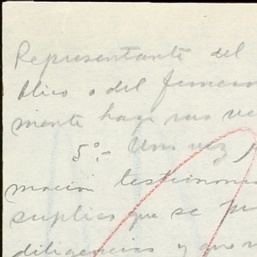 Representante del
blico o del
mente haga sus
5º.- Una vez
mación testimonial
suplico que se
diligencias y que